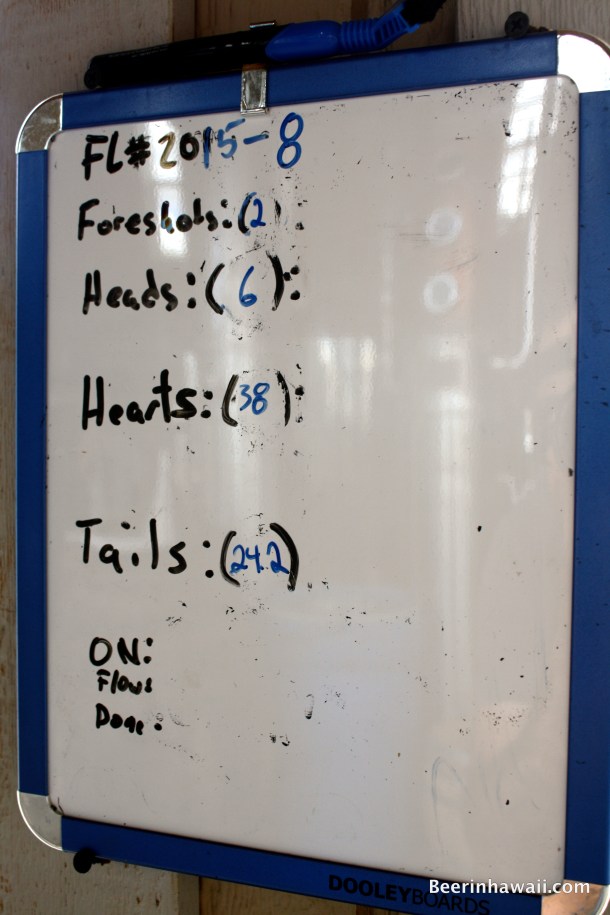 FL# 2015-8
Foreshots: (2) :
Heads: (6):
Hearts: (38):
Tails: (24.2)
ON:
Flows
Done:
DOOLEYBOARDS
Beerinhawaii.com